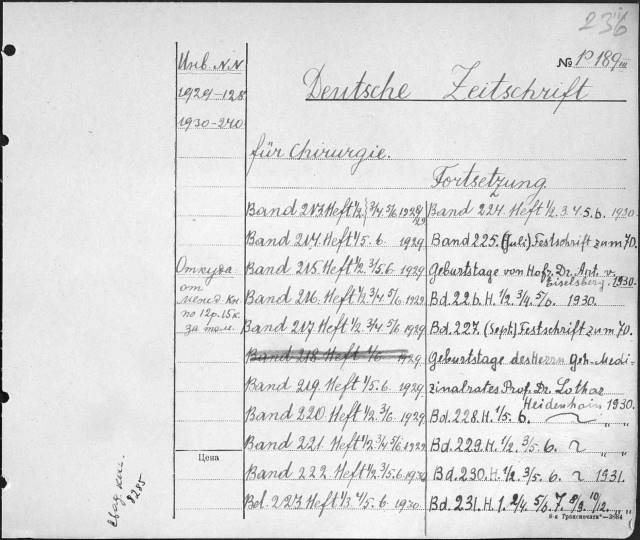 236
№ P 189 III
Инв. N.N
1929-128
1930-240
Deutsche Zeitschrift
für Chirurgie.
Fortsetzung.
Band 213. Heft 1/2, 3/4 5/6 1929
Band 214. Heft 1/5. 6. 1929.
Band 215. Heft 1/2. 3/5. 6. 1929
Band 216. Heft 1/2. 3/4 5/6. 1929.
Band 217. Heft 1/2 3/4 5/6 1929
Band 218 Heft 1/6 1929
Band 219. Heft 1/5. 6. 1929.
Band 220. Heft 1/2. 3/6. 1929.
Band 221. Heft 1/2 3/4 5/6 1929
Band 222. Heft 1/2. 3/5. 6. 1930
Bd. 223. Heft 1/3 4/5. 6. 1930.
Band 224. Heft 1/2. 3. 4. 5. 6. 1930
Band 225. (Juli) Festschrift zum 70.
Geburtstage von Hofr. Dr. Ant. v.
Eiselsberg. 1930.
Bd. 226. H. 1/2. 3/4. 5/6. 1930.
Bd. 227. (Sept.) Festschrift zum 70.
Geburtstage des Herrn Geh. Medi-
zinalrates Prof. Dr. Lothar
Heidenhain 1930.
Bd. 228. H. 1/5. 6. " "
Bd. 229. H. 1/2. 3/5. 6. " "
Bd. 230. H. 1/2. 3/5. 6. 1931.
Bd. 231. H. 1. 2/4. 5/6. 7. 8/9. 10/12. " "
Откуда
от
по 12р. 15к.
за том.
Цена
8285
8-я Тронспечать—3984